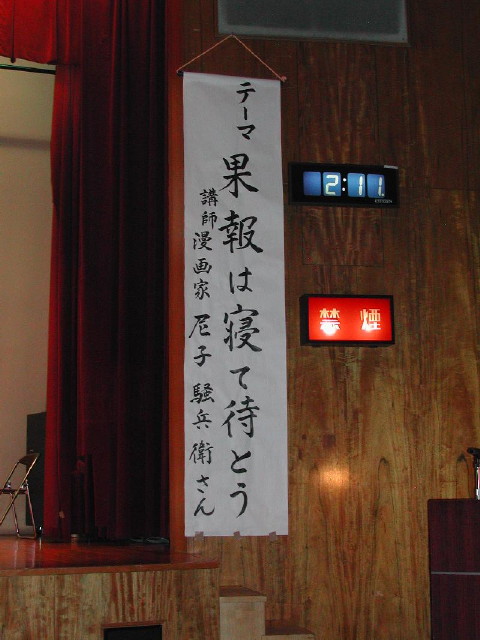 テーマ 果報は寝て待とう
講師 漫画家 尼子 騒兵衛さん
2:11
CITIZEN
禁煙